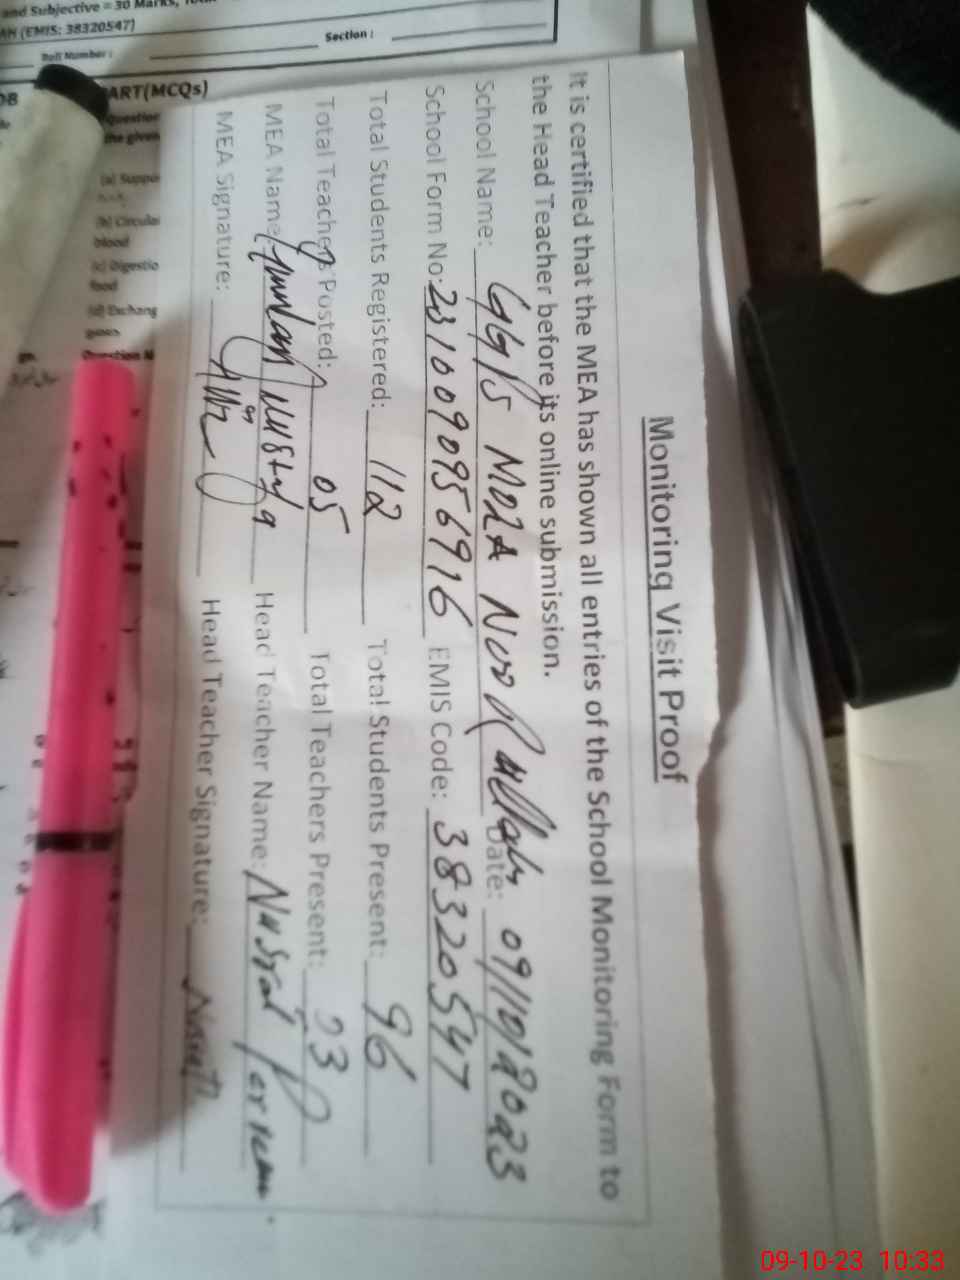 and Subjective = 30 Marks,
(EMIS: 38320547)
Roll Number :
Section :
PART(MCQs)
Question
the given
(a) Suppo
(b) Circula
blood
(c) Digestio
food
(d) Exchang
gases
Question
Monitoring Visit Proof
It is certified that the MEA has shown all entries of the School Monitoring Form to
the Head Teacher before its online submission.
School Name: Date: 09/10/2023
School Form No: 2310090956916 EMIS Code: 38320547
Total Students Registered: 112 Total Students Present: 96
Total Teachers Posted: 05 Total Teachers Present: 03
MEA Name: Mustafa Head Teacher Name: Nusrat
MEA Signature: Head Teacher Signature: Nusrat
09-10-23 10:33